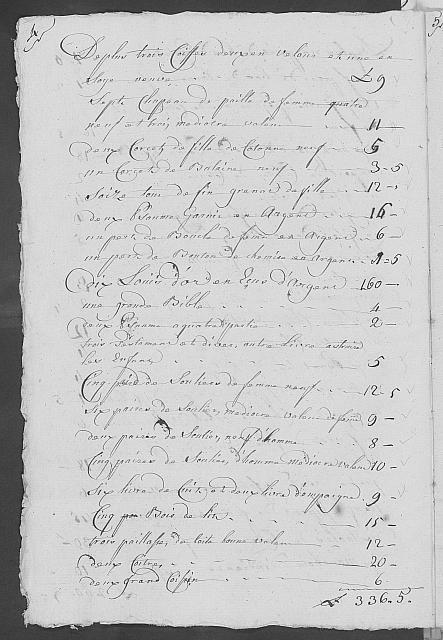 De plus trois Coiffes deux en velour et une en
Soye neuve £ 9
Sept Chapeau de paille de femme quatre
neuf et trois mediocre valeur 11 –
deux Corcets de fille de Cotonne neuf 5
un Corcets de Balaine neuf 3 - 5
Seize tour de fin grenat de fille 12 –
deux Psaume garnie en Argent 16 –
un port de Boucle de femme en Argent 6 –
un port de Bouton de chemise en argent - 5
dix Louis d'or en Ecus d'Argent 160 –
une grande Bible 4 –
deux Psaume a quatre partie 2 –
trois Testament et divers autre Livre
les Enfans 5
Cinq paire de Souliers de femme neuf 12 - 5
Six paires de Soulier mediocre valeur de femme 9 –
deux paires de Soulier neuf d'homme 8 –
Cinq paires de Soulier d'homme mediocre valeur 10 –
Six livre de et deux livre d'empeigne 9 –
Cinq Bois de lit 15 –
trois paillasse de toile bonne valeur 12 –
deux Coitres 20 –
deux grand Coissin 6
£ 336 - 5 -